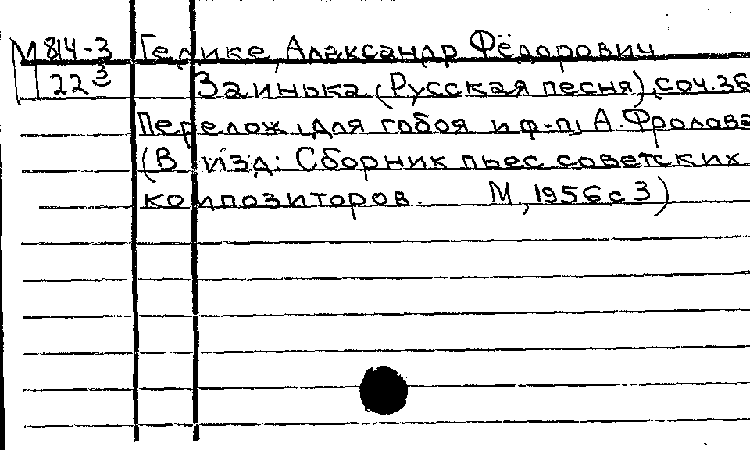 М 814-3 Гедике, Александр Фёдорович
22 3 Заинька (Русская песня), соч. 36
Перелож. для гобоя и ф-п, А. Фролова
(В изд: Сборник пьес советских
композиторов. М, 1956 с 3)